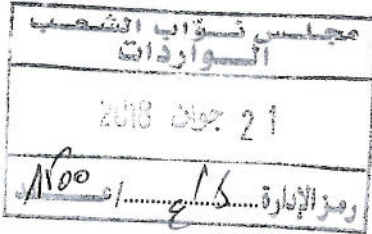 مجلس نواب الشعب
الـواردات
21 جوان 2018
رمز الإدارة ......... / عـــدد